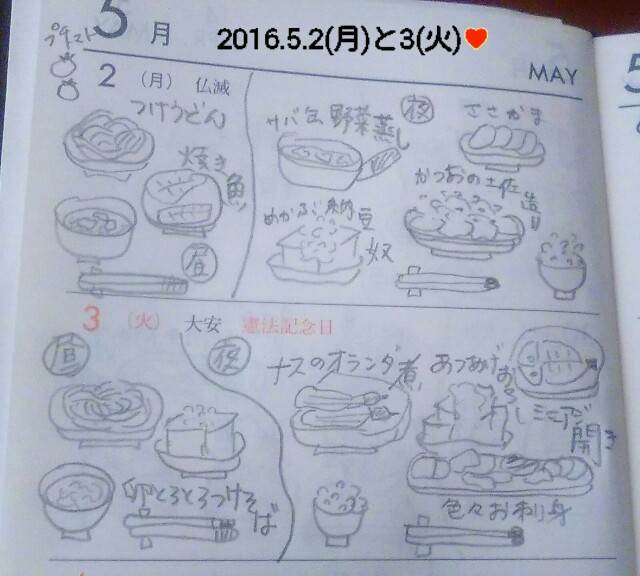 5月
2016.5.2(月)と3(火)♥
MAY
プチトマト
2 (月) 仏滅
つけうどん
焼き魚
昼
夜
サバ缶野菜蒸し
ささかま
かつおの土佐造り
めかぶ納豆奴
3 (火) 大安 憲法記念日
昼
卵とろとろつけそば
夜
ナスのオランダ煮
あつあげおろし
ミニアジ開き
色々お刺身
5